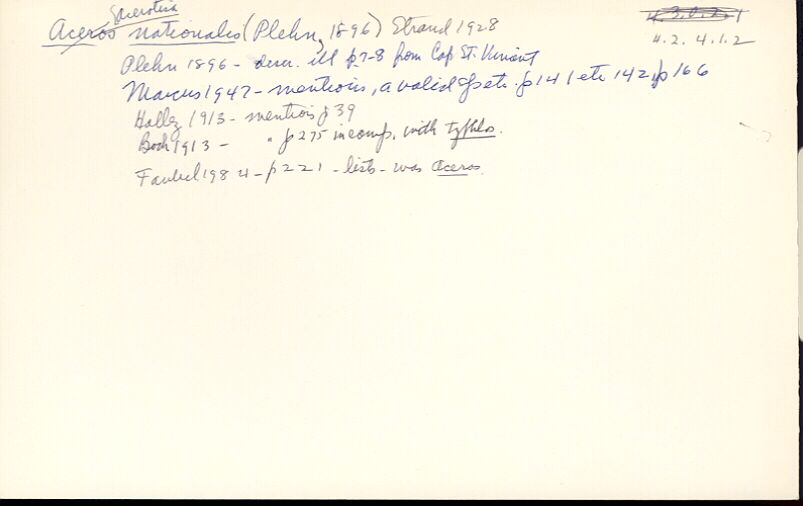 Acerotisa
Aceros nationales (Plehn, 1896) Strand 1928
4.2.4.1.2
Plehn 1896 - descr. ill p7-8 from Cap St. Vincent
Marcus 1947 - mentions, a valid sp etc. p141 etc 142, p166
Hallez 1913 - mentions p39
Bock 1913 - " p275 incomp. with typhlos.
Faubel 1984 - p221 - lists - was Aceros.